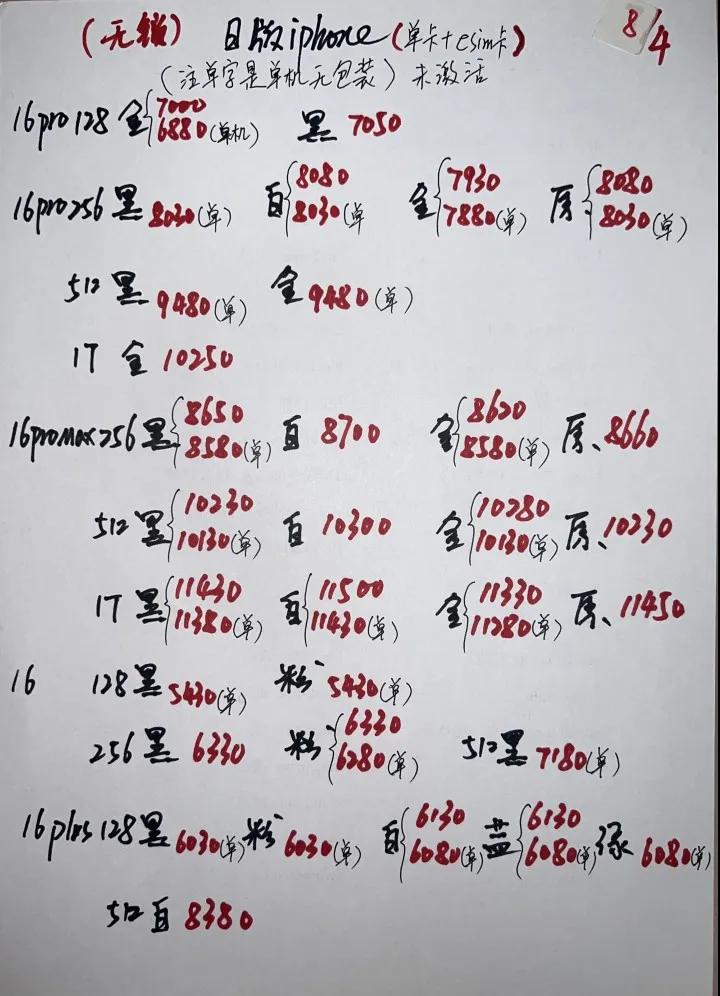 (无锁) 日版iphone(单卡+esim卡) 8/4
(注单字是单机无包装) 未激活
16pro128 金{7000 6880(单机) 黑 7050
16pro256 黑 8030(单) 白{8080 8030(单 金{7930 7880(单) 原{8080 8030(单)
512 黑 9480(单) 金 9480(单)
1T 金 10250
16promax256 黑{8650 8580(单) 白 8700 金{8620 8580(单) 原、8660
512 黑{10230 10130(单) 白 10300 金{10280 10130(单) 原、10230
1T 黑{11430 11380(单) 白{11500 11430(单) 金{11330 11280(单) 原、11450
16 128黑 5430(单) 粉 5430(单)
256 黑 6330 粉{6330 6280(单) 512黑 7180(单)
16plus 128黑 6030(单) 粉 6030(单) 白{6130 6080(单) 蓝{6130 6080(单) 绿 6080(单)
512 白 8380